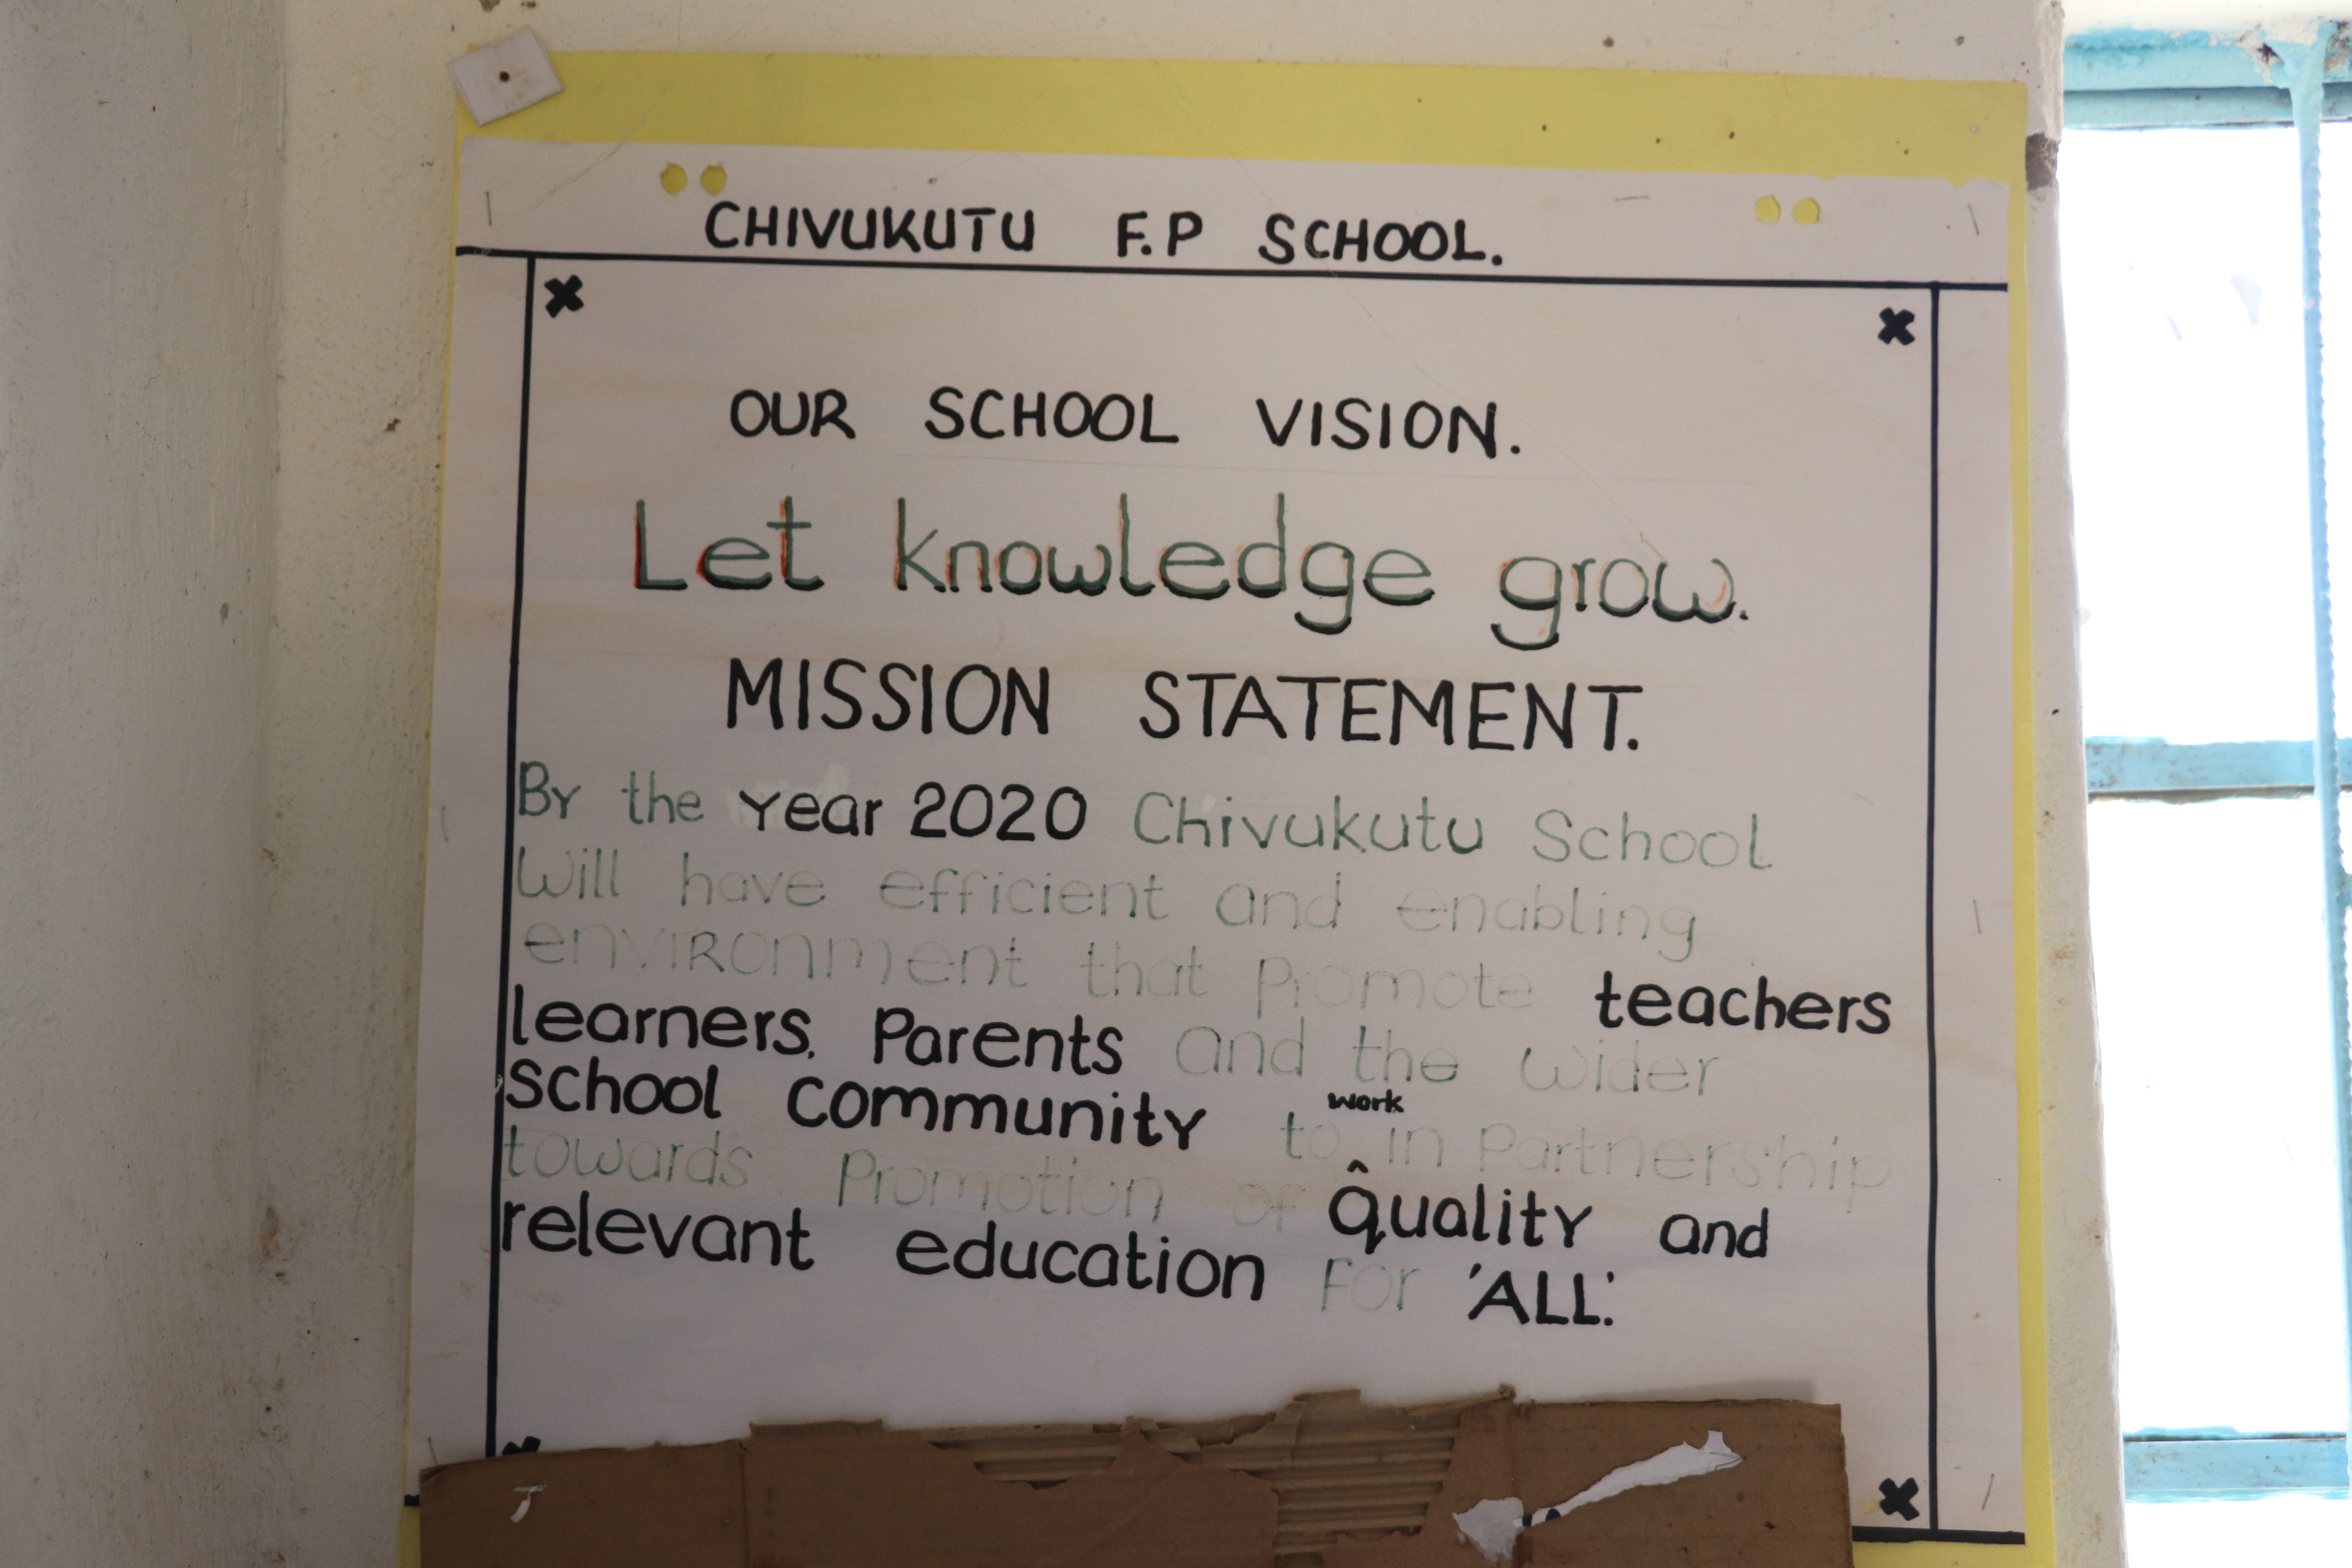 CHIVUKUTU F.P SCHOOL.
OUR SCHOOL VISION.
Let knowledge grow.
MISSION STATEMENT.
By the year 2020 Chivukutu School
Will have efficient and enabling
enviRonment that promote teachers
learners, Parents and the wider
School Community to work in Partnership
towards Promotion of quality and
relevant education For 'ALL'.